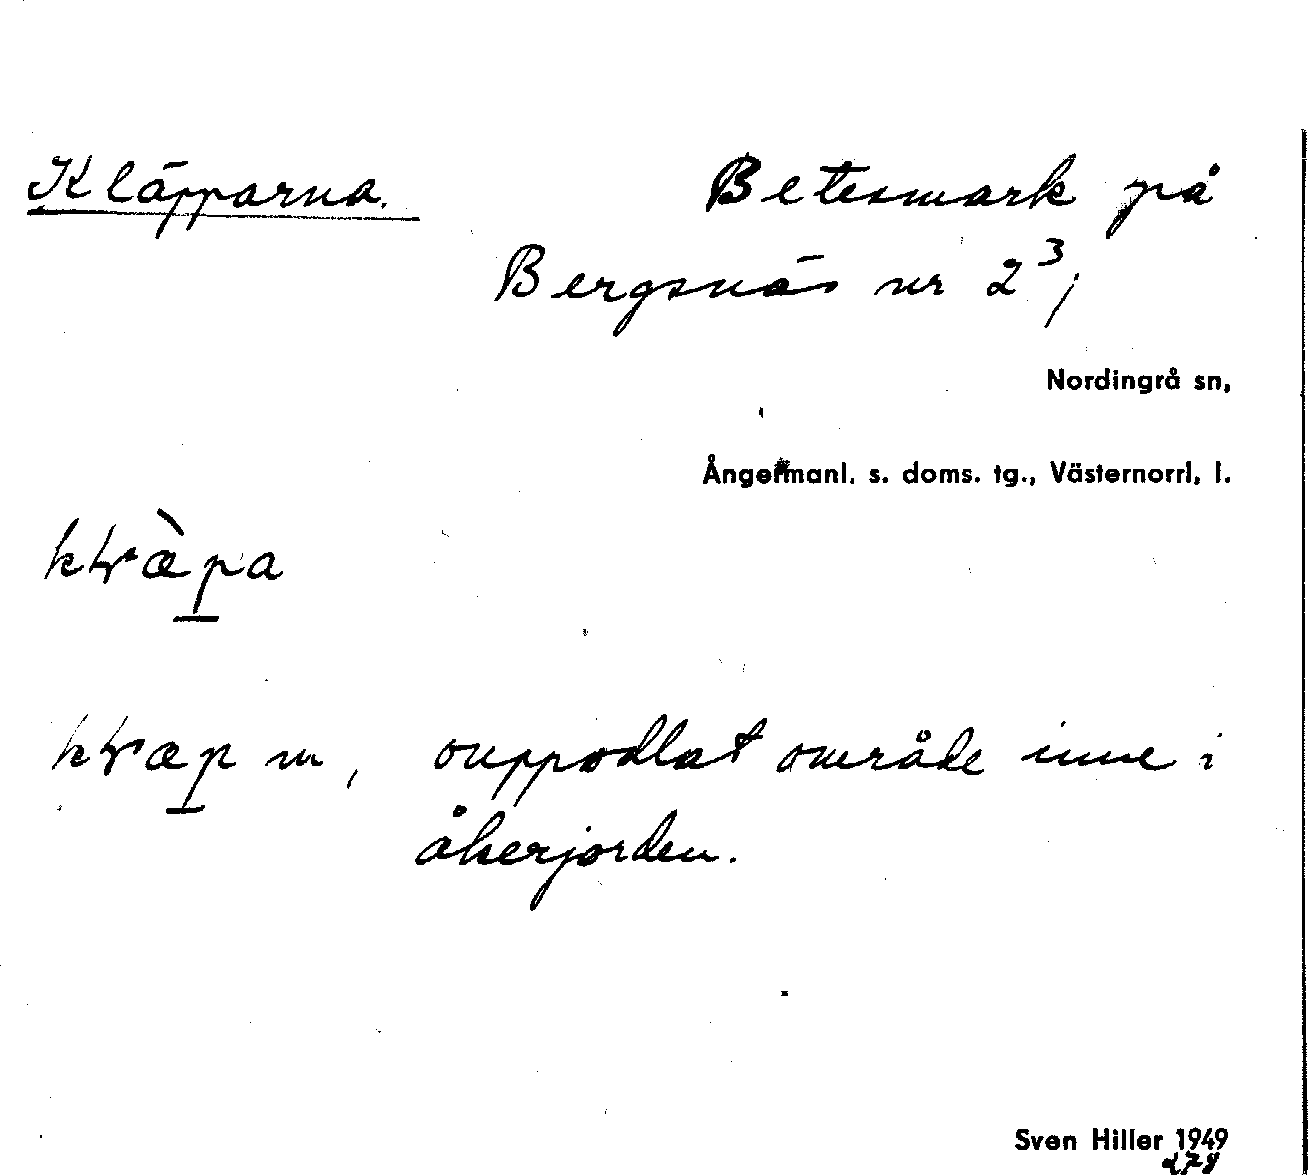 Kläpparna. Betesmark på
Bergsnäs nr 2³,
Nordingrå sn,
Ångermanl. s. doms. tg., Västernorrl, l.
ouppodlat område inne i
åkerjorden.
Sven Hiller 1949
278